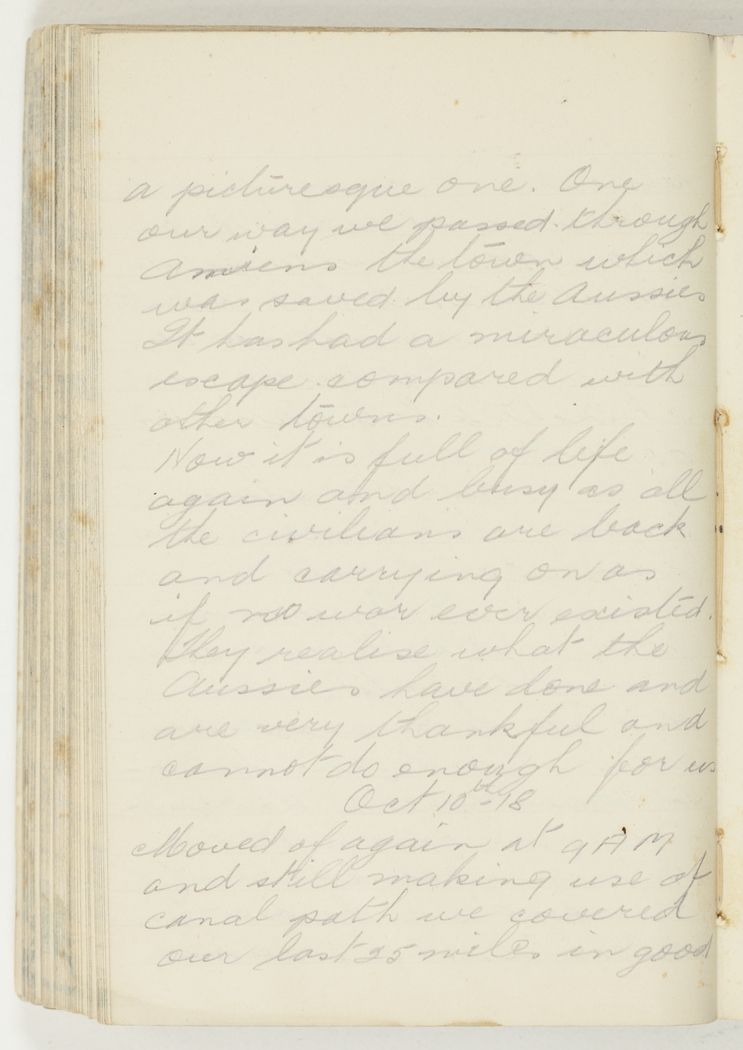 a picturesque one. One
our way we passed through
Amiens the town which
was saved by the Aussies
It has had a miraculous
escape compared with
other towns.
Now it is full of life
again and busy as all
the civilians are back
and carrying on as
if no war ever existed.
They realise what the
Aussies have done and
are very thankful and
cannot do enough for us
Oct 10th-18
Moved of again at 9 A M
and still making use of
canal path we covered
our last 25 miles in good